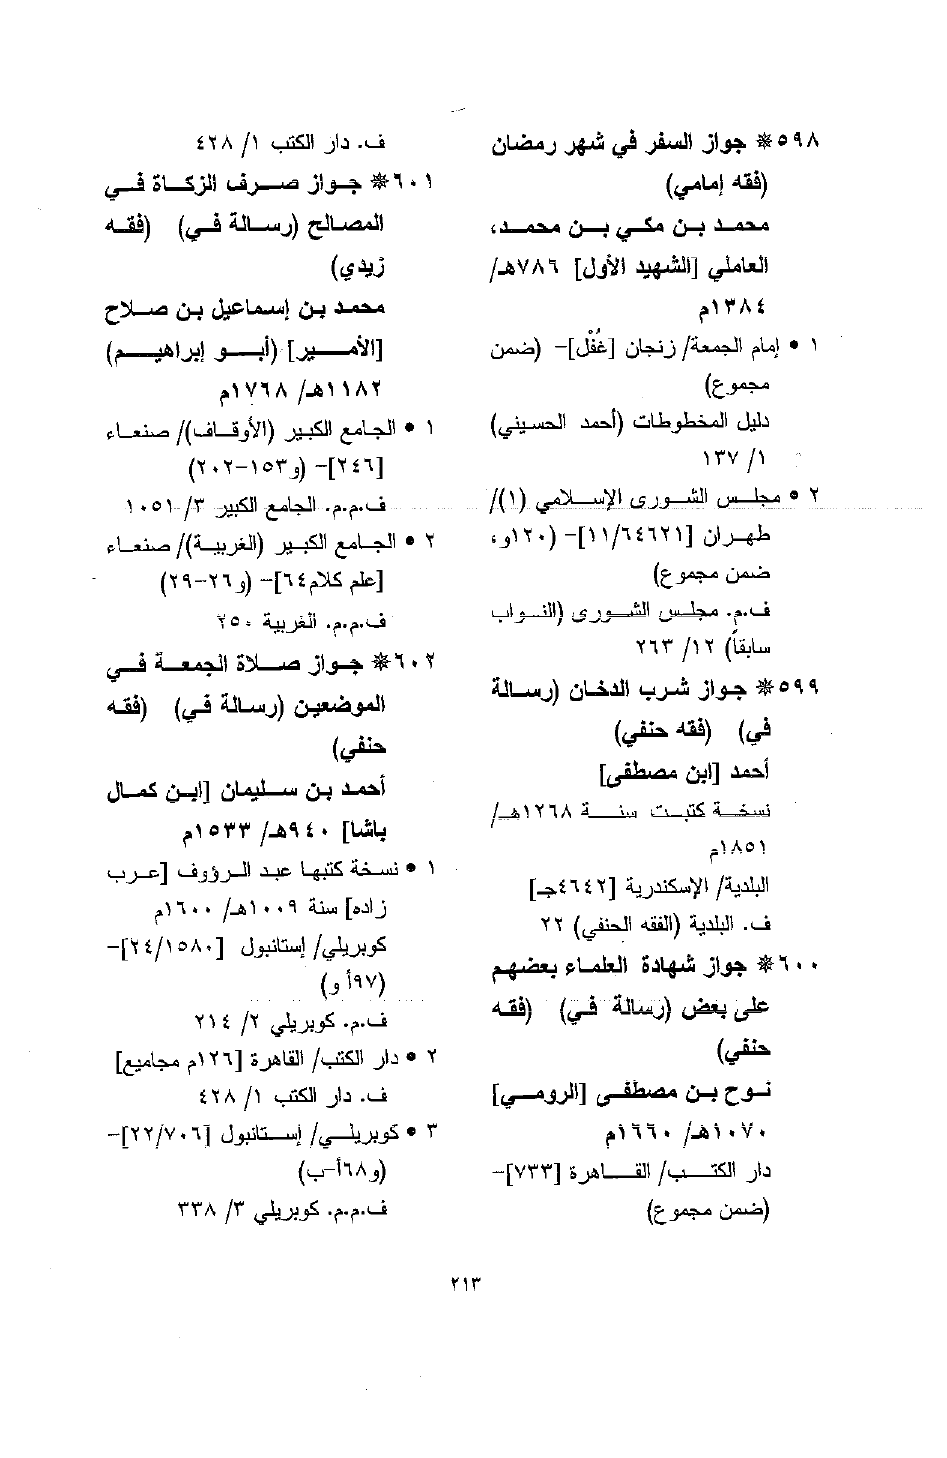 ٥٩٨* جواز السفر في شهر رمضان
(فقه إمامي)
محمد بن مكي بن محمد،
العاملي [الشهيد الأول] ٧٨٦هـ/
١٣٨٤م
١ • إمام الجمعة/ زنجان [غُفْل]- (ضمن
مجموع)
دليل المخطوطات (أحمد الحسيني)
١/ ١٣٧
٢ • مجلس الشورى الإسلامي (١)/
طهران [١١/٦٤٦٢١]- (١٢٠و،
ضمن مجموع)
ف.م. مجلس الشورى (النواب
سابقاً) ١٢/ ٢٦٣
٥٩٩* جواز شرب الدخان (رسالة
في) (فقه حنفي)
أحمد [ابن مصطفى]
نسخة كتبت سنة ١٢٦٨هـ/
١٨٥١م
البلدية/ الإسكندرية [٤٦٤٢جـ]
ف. البلدية (الفقه الحنفي) ٢٢
٦٠٠* جواز شهادة العلماء بعضهم
على بعض (رسالة في) (فقه
حنفي)
نوح بن مصطفى [الرومي]
١٠٧٠هـ/ ١٦٦٠م
دار الكتب/ القاهرة [٧٣٣]-
(ضمن مجموع)
ف. دار الكتب ١/ ٤٢٨
٦٠١* جواز صرف الزكاة في
المصالح (رسالة في) (فقه
زيدي)
محمد بن إسماعيل بن صلاح
[الأمير] (أبو إبراهيم)
١١٨٢هـ/ ١٧٦٨م
١ • الجامع الكبير (الأوقاف)/ صنعاء
[٢٤٦]- (و١٥٣-٢٠٢)
ف.م.م. الجامع الكبير ٣/ ١٠٥١
٢ • الجامع الكبير (الغربية)/ صنعاء
[علم كلام٦٤]- (و٢٦-٢٩)
ف.م.م. الغربية ٢٥٠
٦٠٢* جواز صلاة الجمعة في
الموضعين (رسالة في) (فقه
حنفي)
أحمد بن سليمان [ابن كمال
باشا] ٩٤٠هـ/ ١٥٣٣م
١ • نسخة كتبها عبد الرؤوف [عرب
زاده] سنة ١٠٠٩هـ/ ١٦٠٠م
كوبريلي/ إستانبول [٢٤/١٥٨٠]-
(٩٧أ و)
ف.م. كوبريلي ٢/ ٢١٤
٢ • دار الكتب/ القاهرة [١٢٦م مجاميع]
ف. دار الكتب ١/ ٤٢٨
٣ • كوبريلي/ إستانبول [٢٢/٧٠٦]-
(و٦٨أ-ب)
ف.م.م. كوبريلي ٣/ ٣٣٨
٢١٣